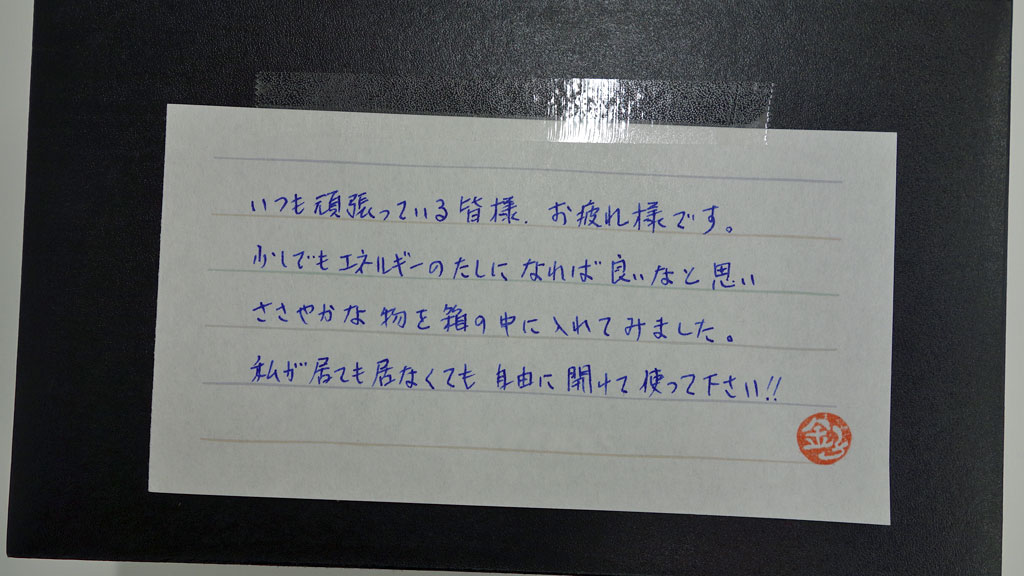 いつも頑張っている皆様、お疲れ様です。
少しでもエネルギーのたしになれば良いなと思い
ささやかな物を箱の中に入れてみました。
私が居ても居なくても自由に開けて使って下さい!!
金